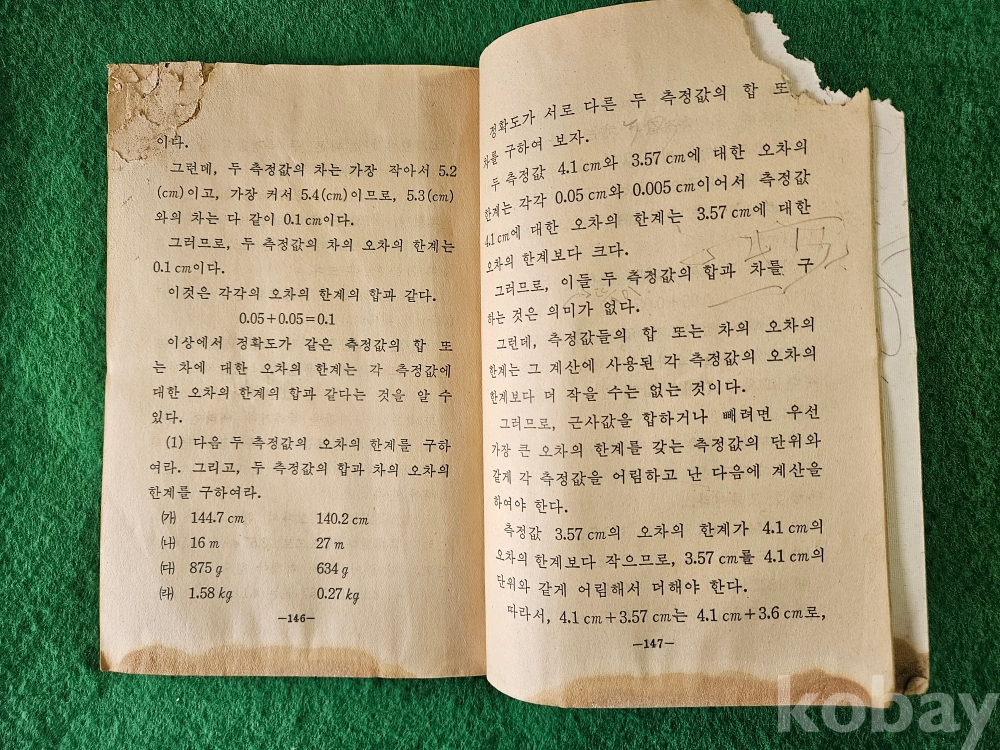 이다.
그런데, 두 측정값의 차는 가장 작아서 5.2
(cm)이고, 가장 커서 5.4(cm)이므로, 5.3(cm)
와의 차는 다 같이 0.1 cm이다.
그러므로, 두 측정값의 차의 오차의 한계는
0.1 cm이다.
이것은 각각의 오차의 한계의 합과 같다.
0.05+0.05=0.1
이상에서 정확도가 같은 측정값의 합 또
는 차에 대한 오차의 한계는 각 측정값에
대한 오차의 한계의 합과 같다는 것을 알 수
있다.
(1) 다음 두 측정값의 오차의 한계를 구하
여라. 그리고, 두 측정값의 합과 차의 오차의
한계를 구하여라.
㈎ 144.7 cm 140.2 cm
㈏ 16 m 27 m
㈐ 875 g 634 g
㈑ 1.58 kg 0.27 kg
—146—
정확도가 서로 다른 두 측정값의 합 또
차를 구하여 보자.
두 측정값 4.1 cm와 3.57 cm에 대한 오차의
한계는 각각 0.05 cm와 0.005 cm이어서 측정값
4.1 cm에 대한 오차의 한계는 3.57 cm에 대한
오차의 한계보다 크다.
그러므로, 이들 두 측정값의 합과 차를 구
하는 것은 의미가 없다.
그런데, 측정값들의 합 또는 차의 오차의
한계는 그 계산에 사용된 각 측정값의 오차의
한계보다 더 작을 수는 없는 것이다.
그러므로, 근사값을 합하거나 빼려면 우선
가장 큰 오차의 한계를 갖는 측정값의 단위와
같게 각 측정값을 어림하고 난 다음에 계산을
하여야 한다.
측정값 3.57 cm의 오차의 한계가 4.1 cm의
오차의 한계보다 작으므로, 3.57 cm를 4.1 cm의
단위와 같게 어림해서 더해야 한다.
따라서, 4.1 cm+3.57 cm는 4.1 cm+3.6 cm로,
—147—
kobay